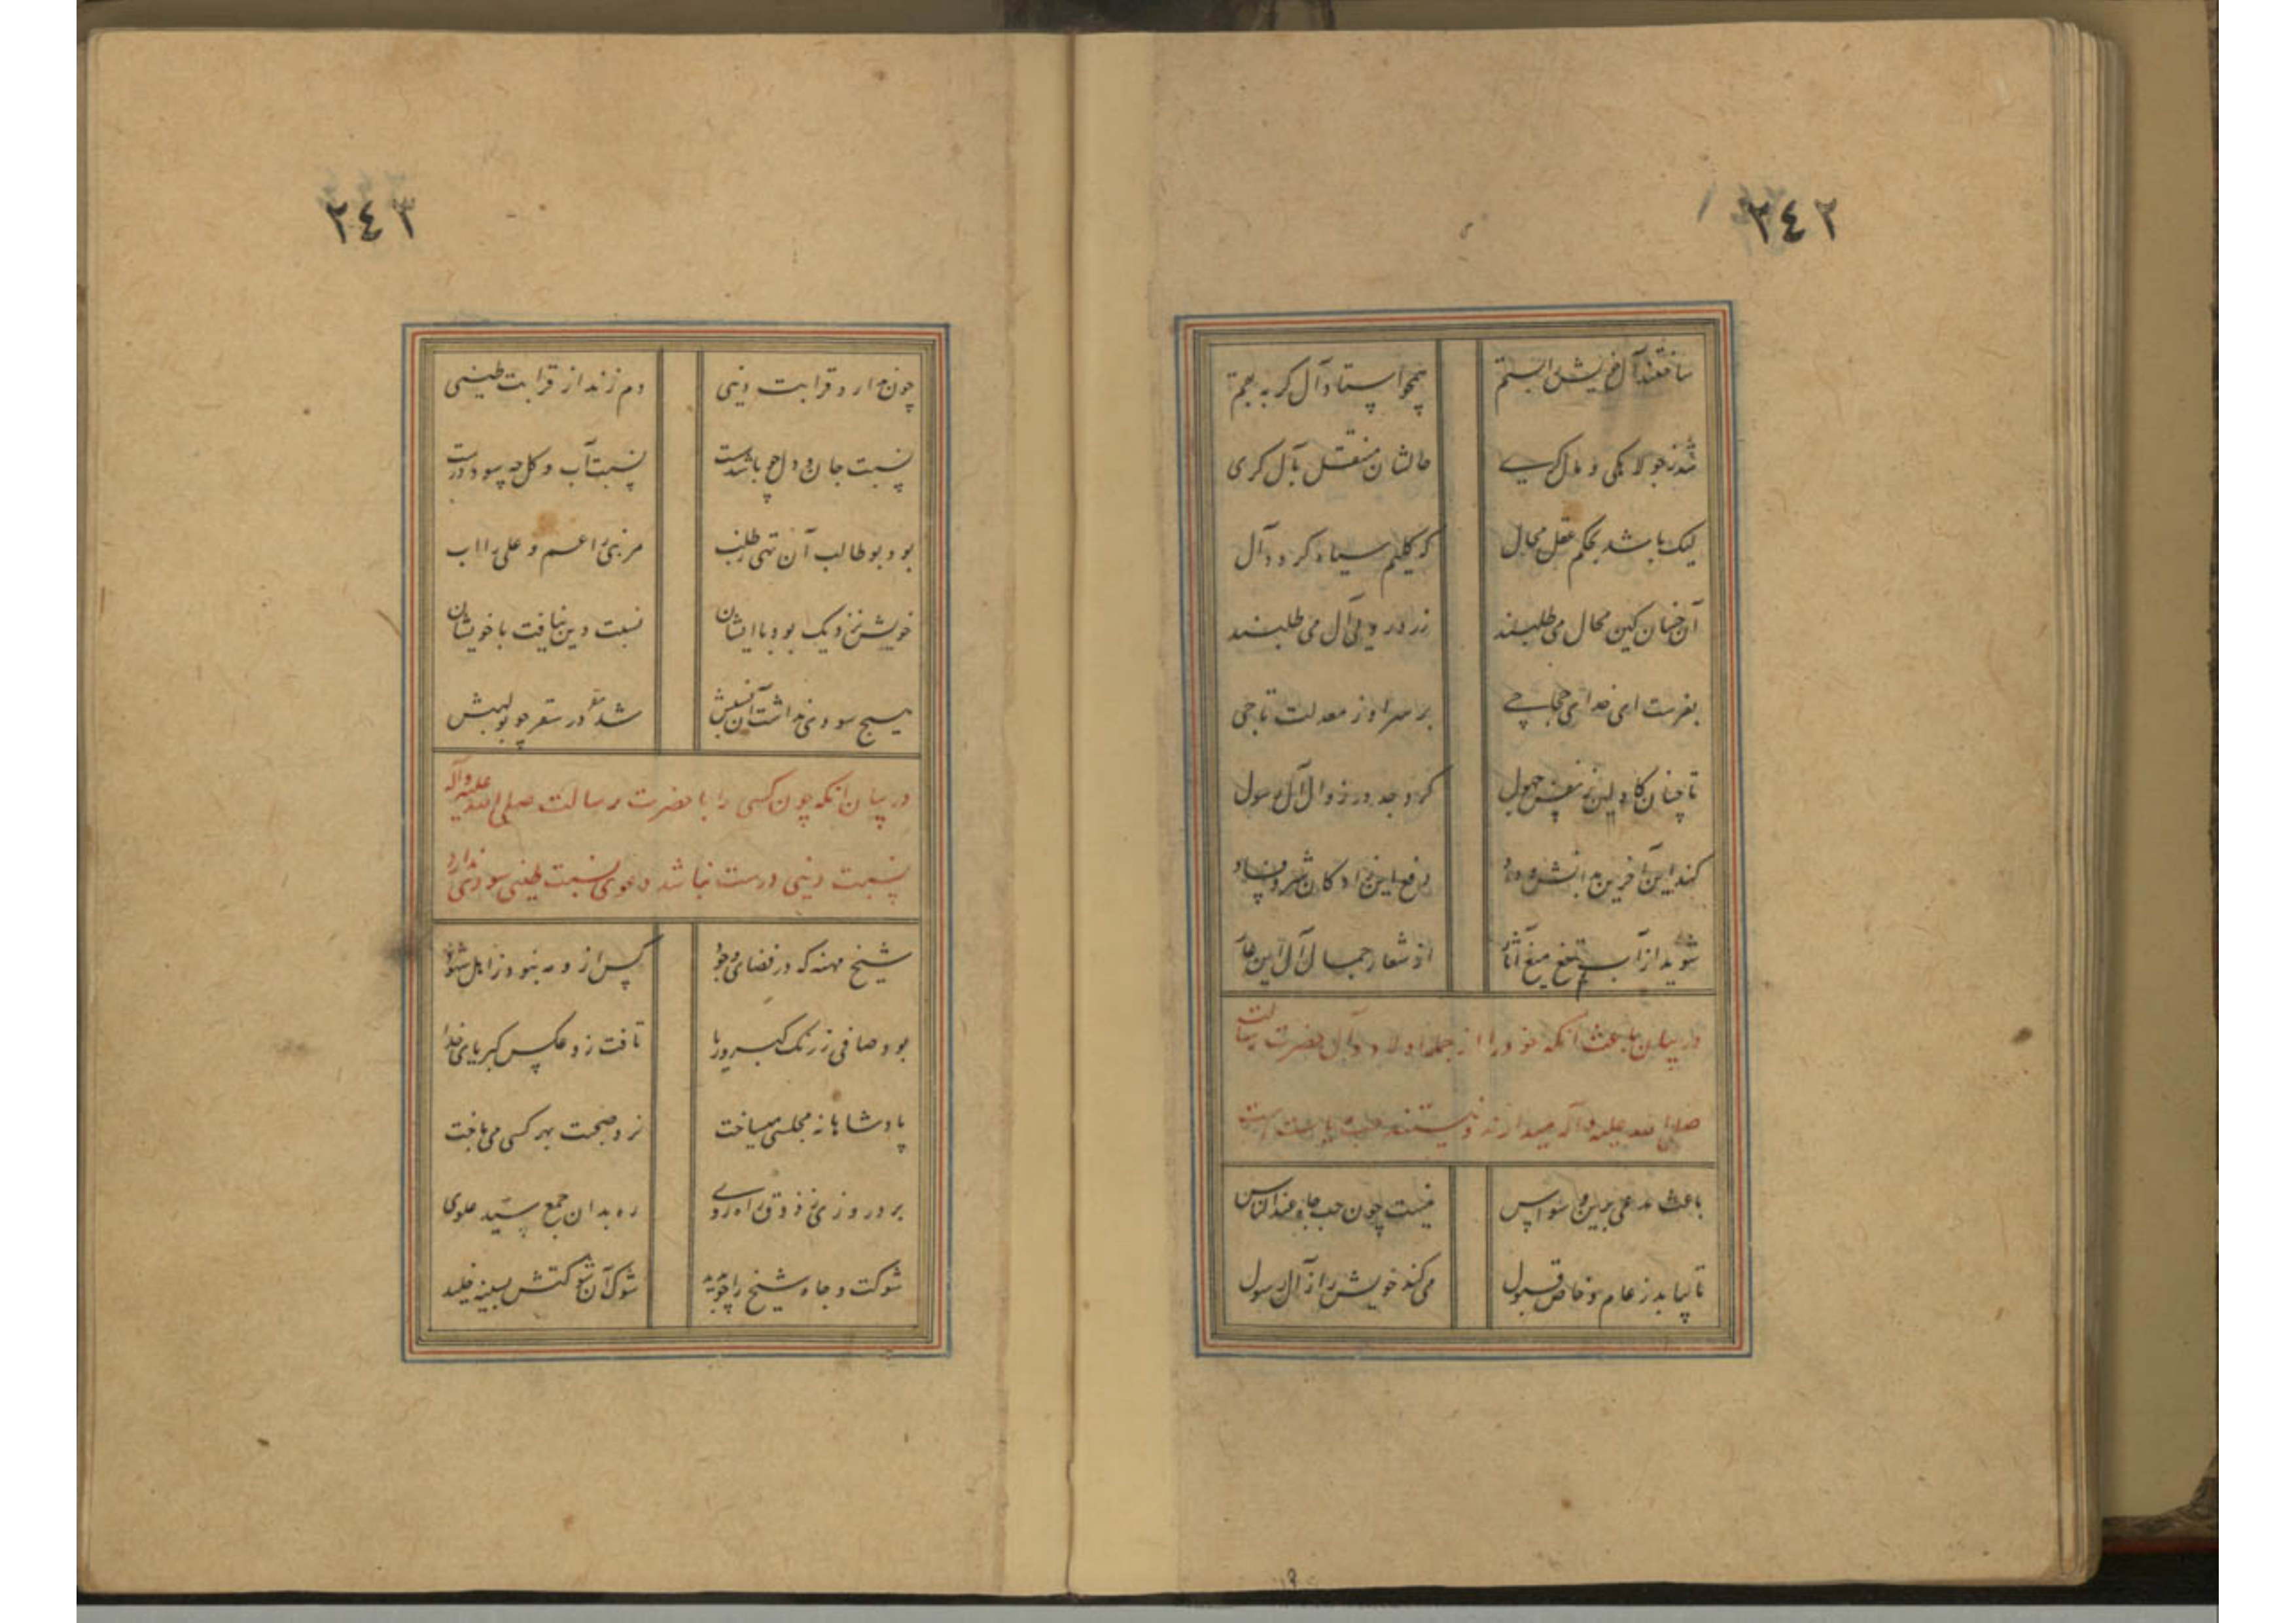 ٢٤٢
ساختند آل خویش را بستم
همچو استاد آل کر به بقم
شد ز جولاهکی و دل کرے
حالشان منتقل بآل کری
لیک باشد بحکم عقل محال
که کلیم سیاه کردد آل
آن خسان کین محال می طلبند
زر در وپی آل می طلبند
بفرست ای خدای حجاجے
بر سر او ز معدلت تاجی
تا چنان کاولین ز نفس جهول
کرد جد در زوال آل رسول
کند این آخرین بدانش و داد
رفع این زادکان شر و فساد
شوید از آب تیغ میغ آثار
از شعار جمال آل این عار
در بیان باعث آنکه خود را از جمله اولاد و آل حضرت رسالت
صلی الله علیه و آله میدارند و نیستند
باعث مدعی برین وسواس
نیست چون حب جاه عند الناس
تا بیابد ز عام و خاص قبول
می کند خویش را ز آل رسول
٢٤٣
چون ندارد قرابت دینی
دم زند از قرابت طینی
نسبت جان و دل چو باشد سست
نسبت آب و کل چه سود درست
بود بو طالب آن تهی ز طلب
مر نبی را عم و علی را اب
خویش نزدیک بود با ایشان
نسبت دین نیافت با خویشان
هیچ سودی نداشت آن نسبش
شد مقر در سقر چو بولهبش
در بیان آنکه چون کسی را با حضرت رسالت صلی الله علیه و آله
نسبت دینی درست نباشد دعوی نسبت طینی سودی ندارد
شیخ مهنه که در فضای وجود
کس ازو به نبود ز اهل شهود
بود صافی ز زنک کبر و ریا
تافت زو عکس کبریای خدا
پادشاهانه مجلسی میساخت
نرد صحبت بهر کسی می باخت
برد روزی ز ذوق راه روے
ره بدان جمع سید علوی
شوکت و جاه شیخ را چو بدید
شوک آن شوکتش بسینه خلید